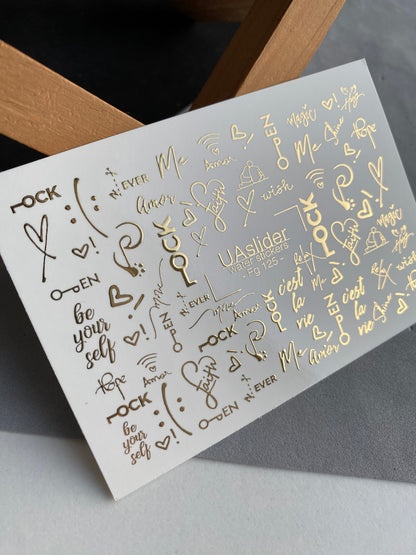 ROCK
:(
NEVER
Me
Amor
OPEN
Magic
Hope
Amor
Me
Shine
Hope
Amor
faith
wish
ROCK
ROCK
faith
magic
OPEN
UAslider
Water stickers
- Fg 125 -
be
your
self
Me
NEVER
c'est
la
vie
OPEN
c'est
la
vie
Shine
Hope
Amor
ROCK
OPEN
Me
Amor
ROCK
:(
faith
NEVER
be
your
self
OPEN